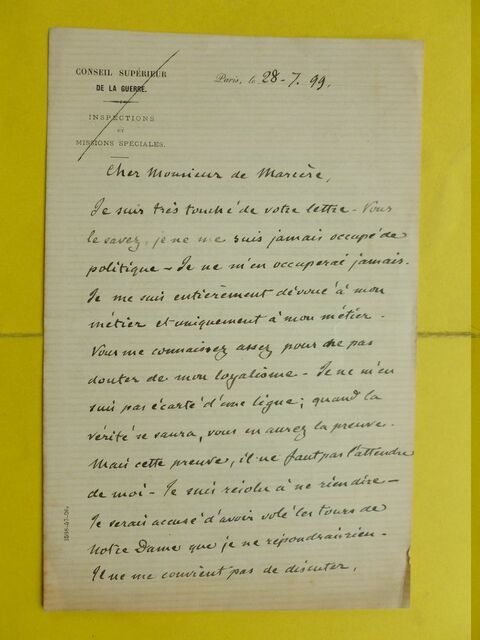 CONSEIL SUPÉRIEUR
DE LA GUERRE.
INSPECTIONS
ET
MISSIONS SPÉCIALES.
Paris, le 28-7.99.
Cher Monsieur de Marcère,
Je suis très touché de votre lettre - Vous
le savez, je ne me suis jamais occupé de
politique - Je ne m'en occuperai jamais.
Je me suis entièrement dévoué à mon
métier et uniquement à mon métier -
Vous me connaissez assez pour ne pas
douter de mon loyalisme - Je ne m'en
suis pas écarté d'une ligne; quand la
vérité se saura, vous en aurez la preuve.
Mais cette preuve, il ne faut pas l'attendre
de moi - Je suis résolu à ne rien dire -
Je serais accusé d'avoir volé les tours de
Notre Dame que je ne répondrais rien -
Il ne me convient pas de discuter,